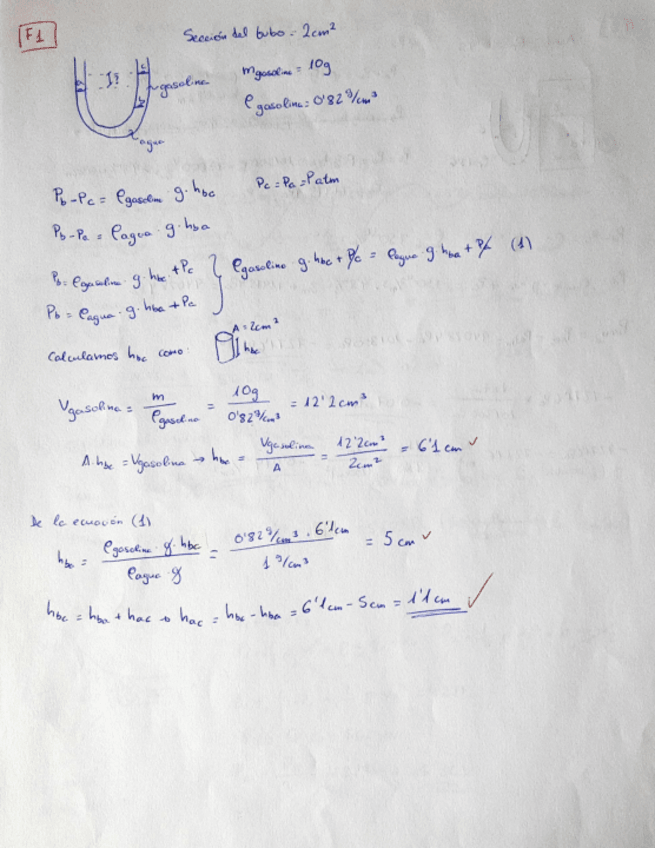 F1
Sección del tubo = 2cm²
a I? c b gasolina
agua
m gasolina = 10g
ρ gasolina = 0'82 g/cm³
P_b - P_c = ρ gasolina · g · h_bc
P_c = P_a = P_atm
P_b - P_a = ρ agua · g · h_ba
P_b = ρ gasolina · g · h_bc + P_c
P_b = ρ agua · g · h_ba + P_c
} ρ gasolina · g · h_bc + P_c = ρ agua · g · h_ba + P_c (1)
Calculamos h_bc como:
A = 2cm²
h_bc
V gasolina = m / ρ gasolina = 10g / 0'82 g/cm³ = 12'2 cm³
A · h_bc = V gasolina → h_bc = V gasolina / A = 12'2 cm³ / 2cm² = 6'1 cm ✓
De la ecuación (1)
h_ba = ρ gasolina · g · h_bc / ρ agua · g = 0'82 g/cm³ · 6'1 cm / 1 g/cm³ = 5 cm ✓
h_bc = h_ba + h_ac → h_ac = h_bc - h_ba = 6'1 cm - 5 cm = 1'1 cm ✓